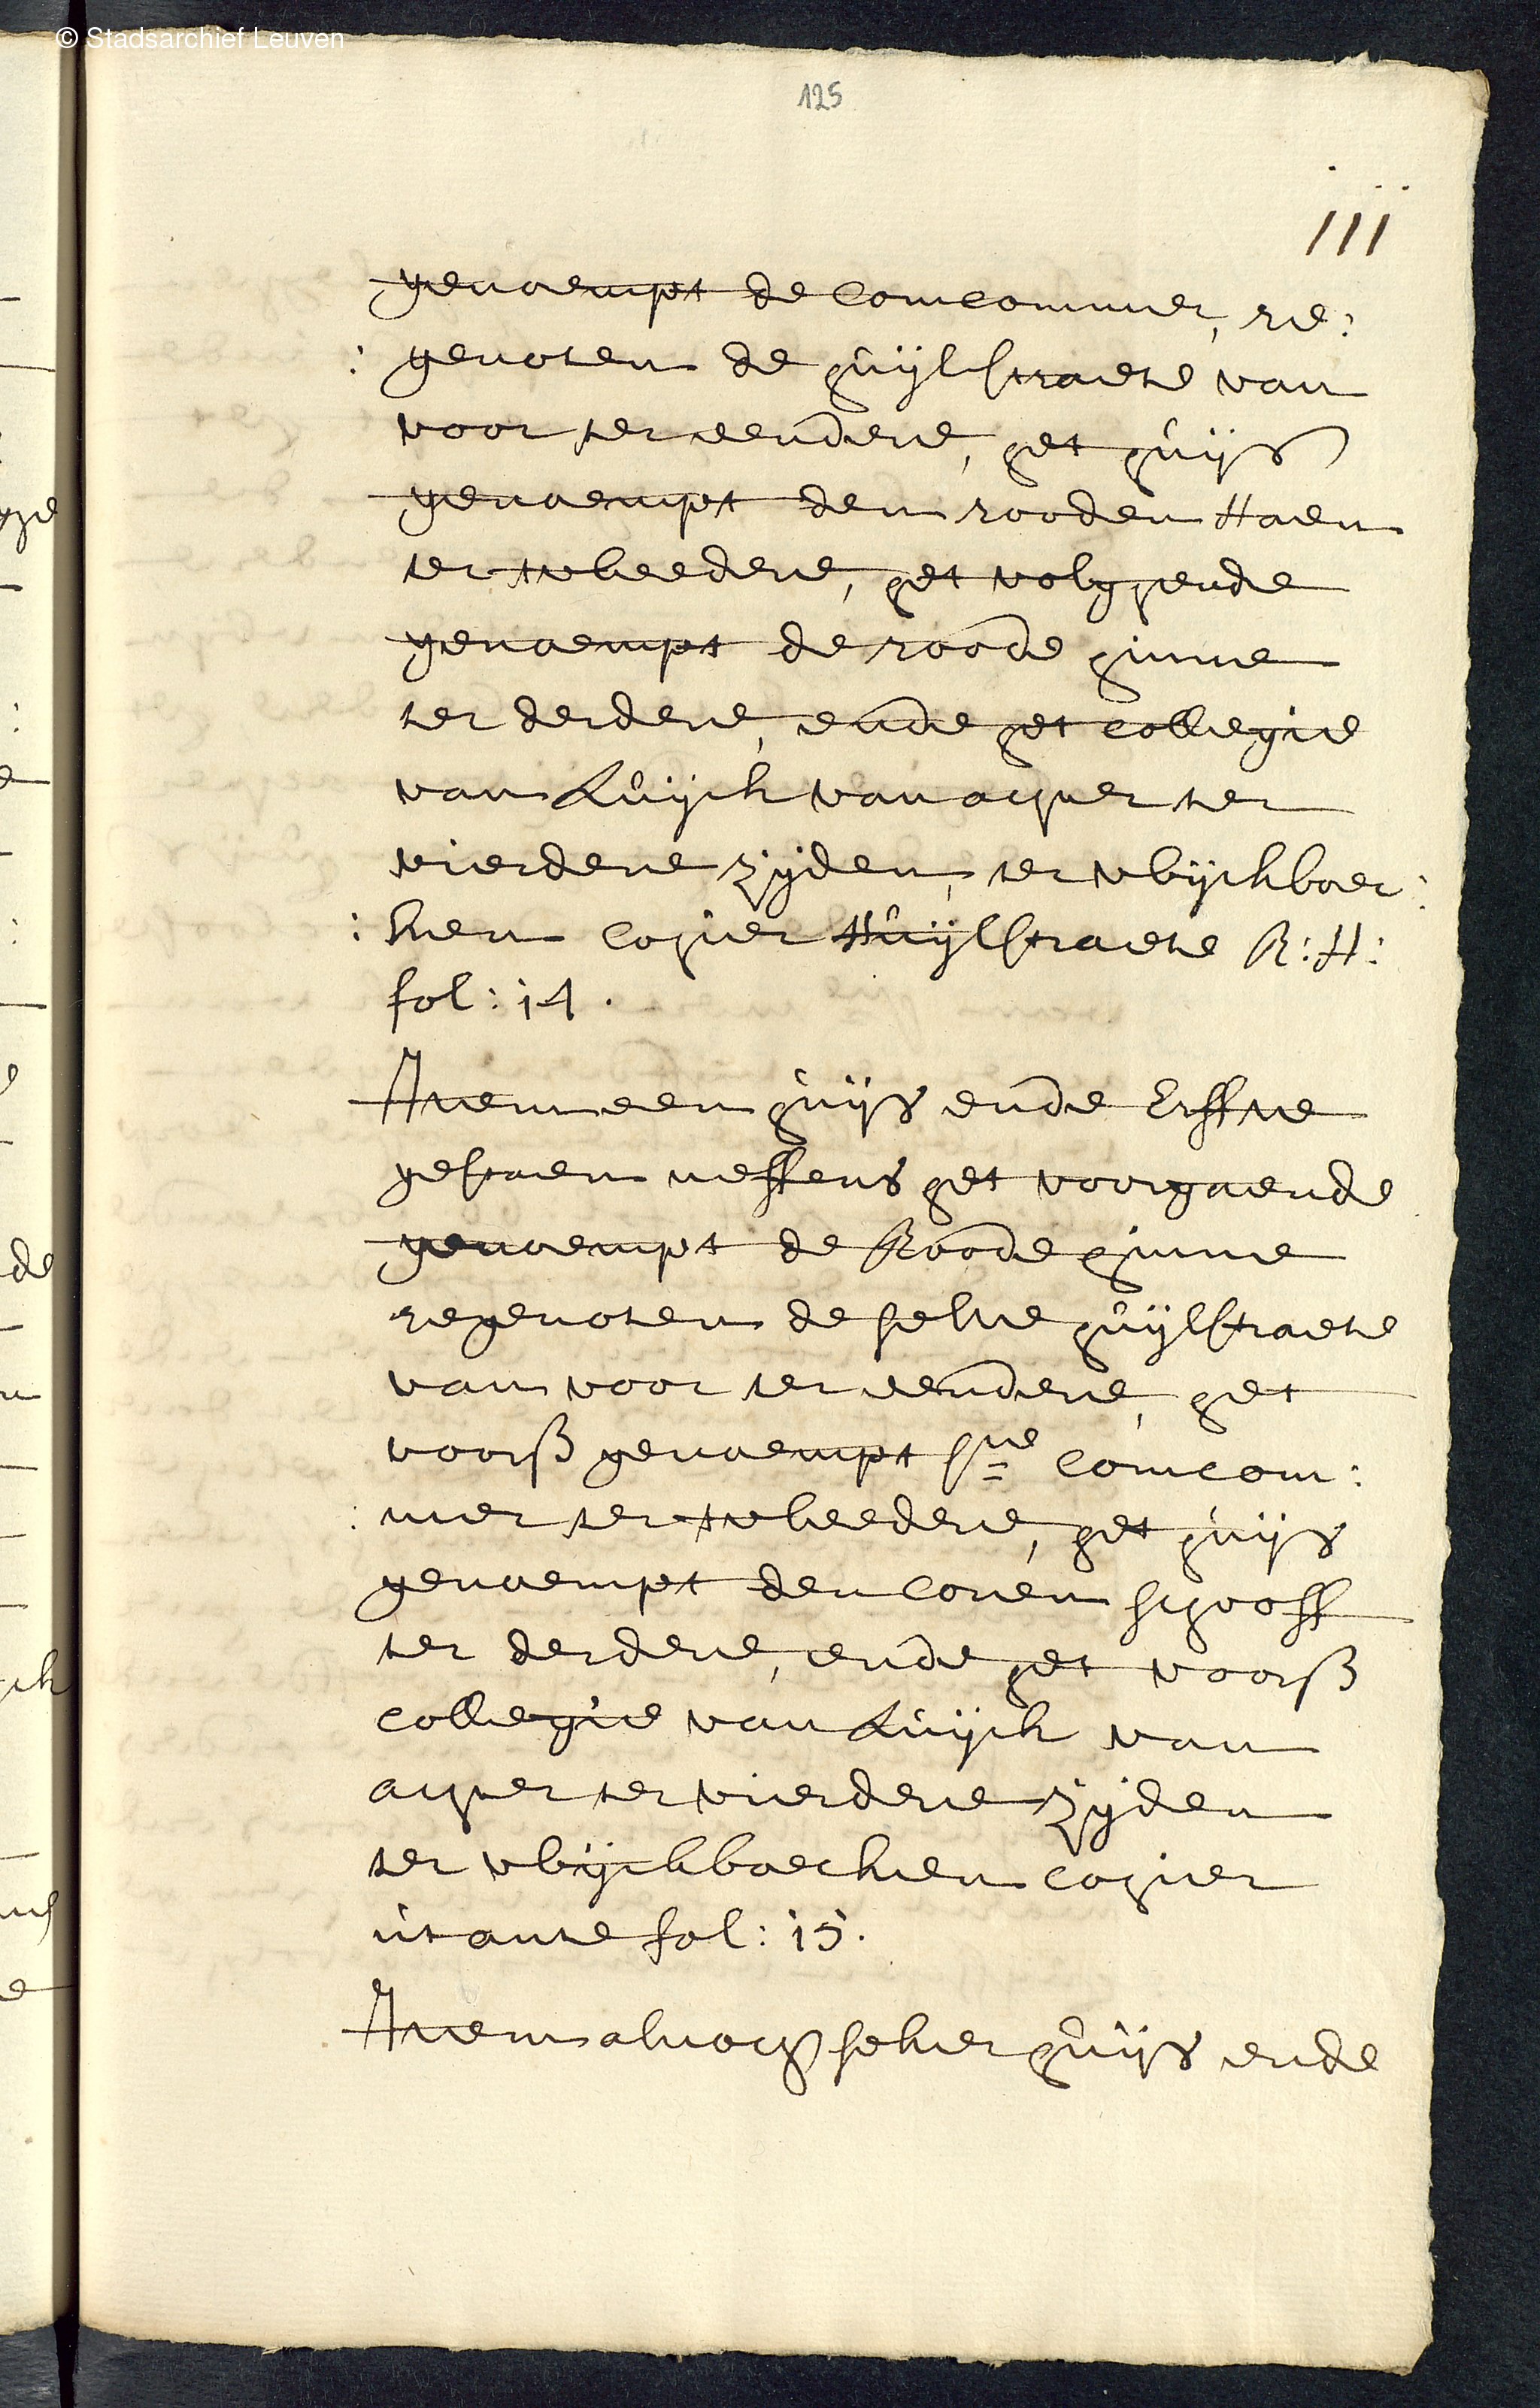 © Stadsarchief Leuven
125
iii
genaempt de Comcommer, re:
: genoten de huijlstraete van
voor ter eendere, het huijs
genaempt den rooden Haen
ter tweedere, het volghende
genaempt de roode hinne
ter derdere, ende het collegie
van Luijck van achter ter
vierdere zijden, ter wijckboec:
: ken Copier Huijlstraete R: H:
fol: 14.
Item een huijs ende Erffve
gestaen neffens het voorgaende
genaempt de Roode hinne
regenoten de selve huijlstraete
van voor ter eendere, het
voorß genaempt Comcom:
: mer ter tweedere, het huijs
genaempt den Coren schooff
ter derdere, ende het voorß
collegie van Luijck van
achter ter vierdere zijden
ter wijckboecken copier
ut ante fol: 15.
Item alnoch seker huijs ende